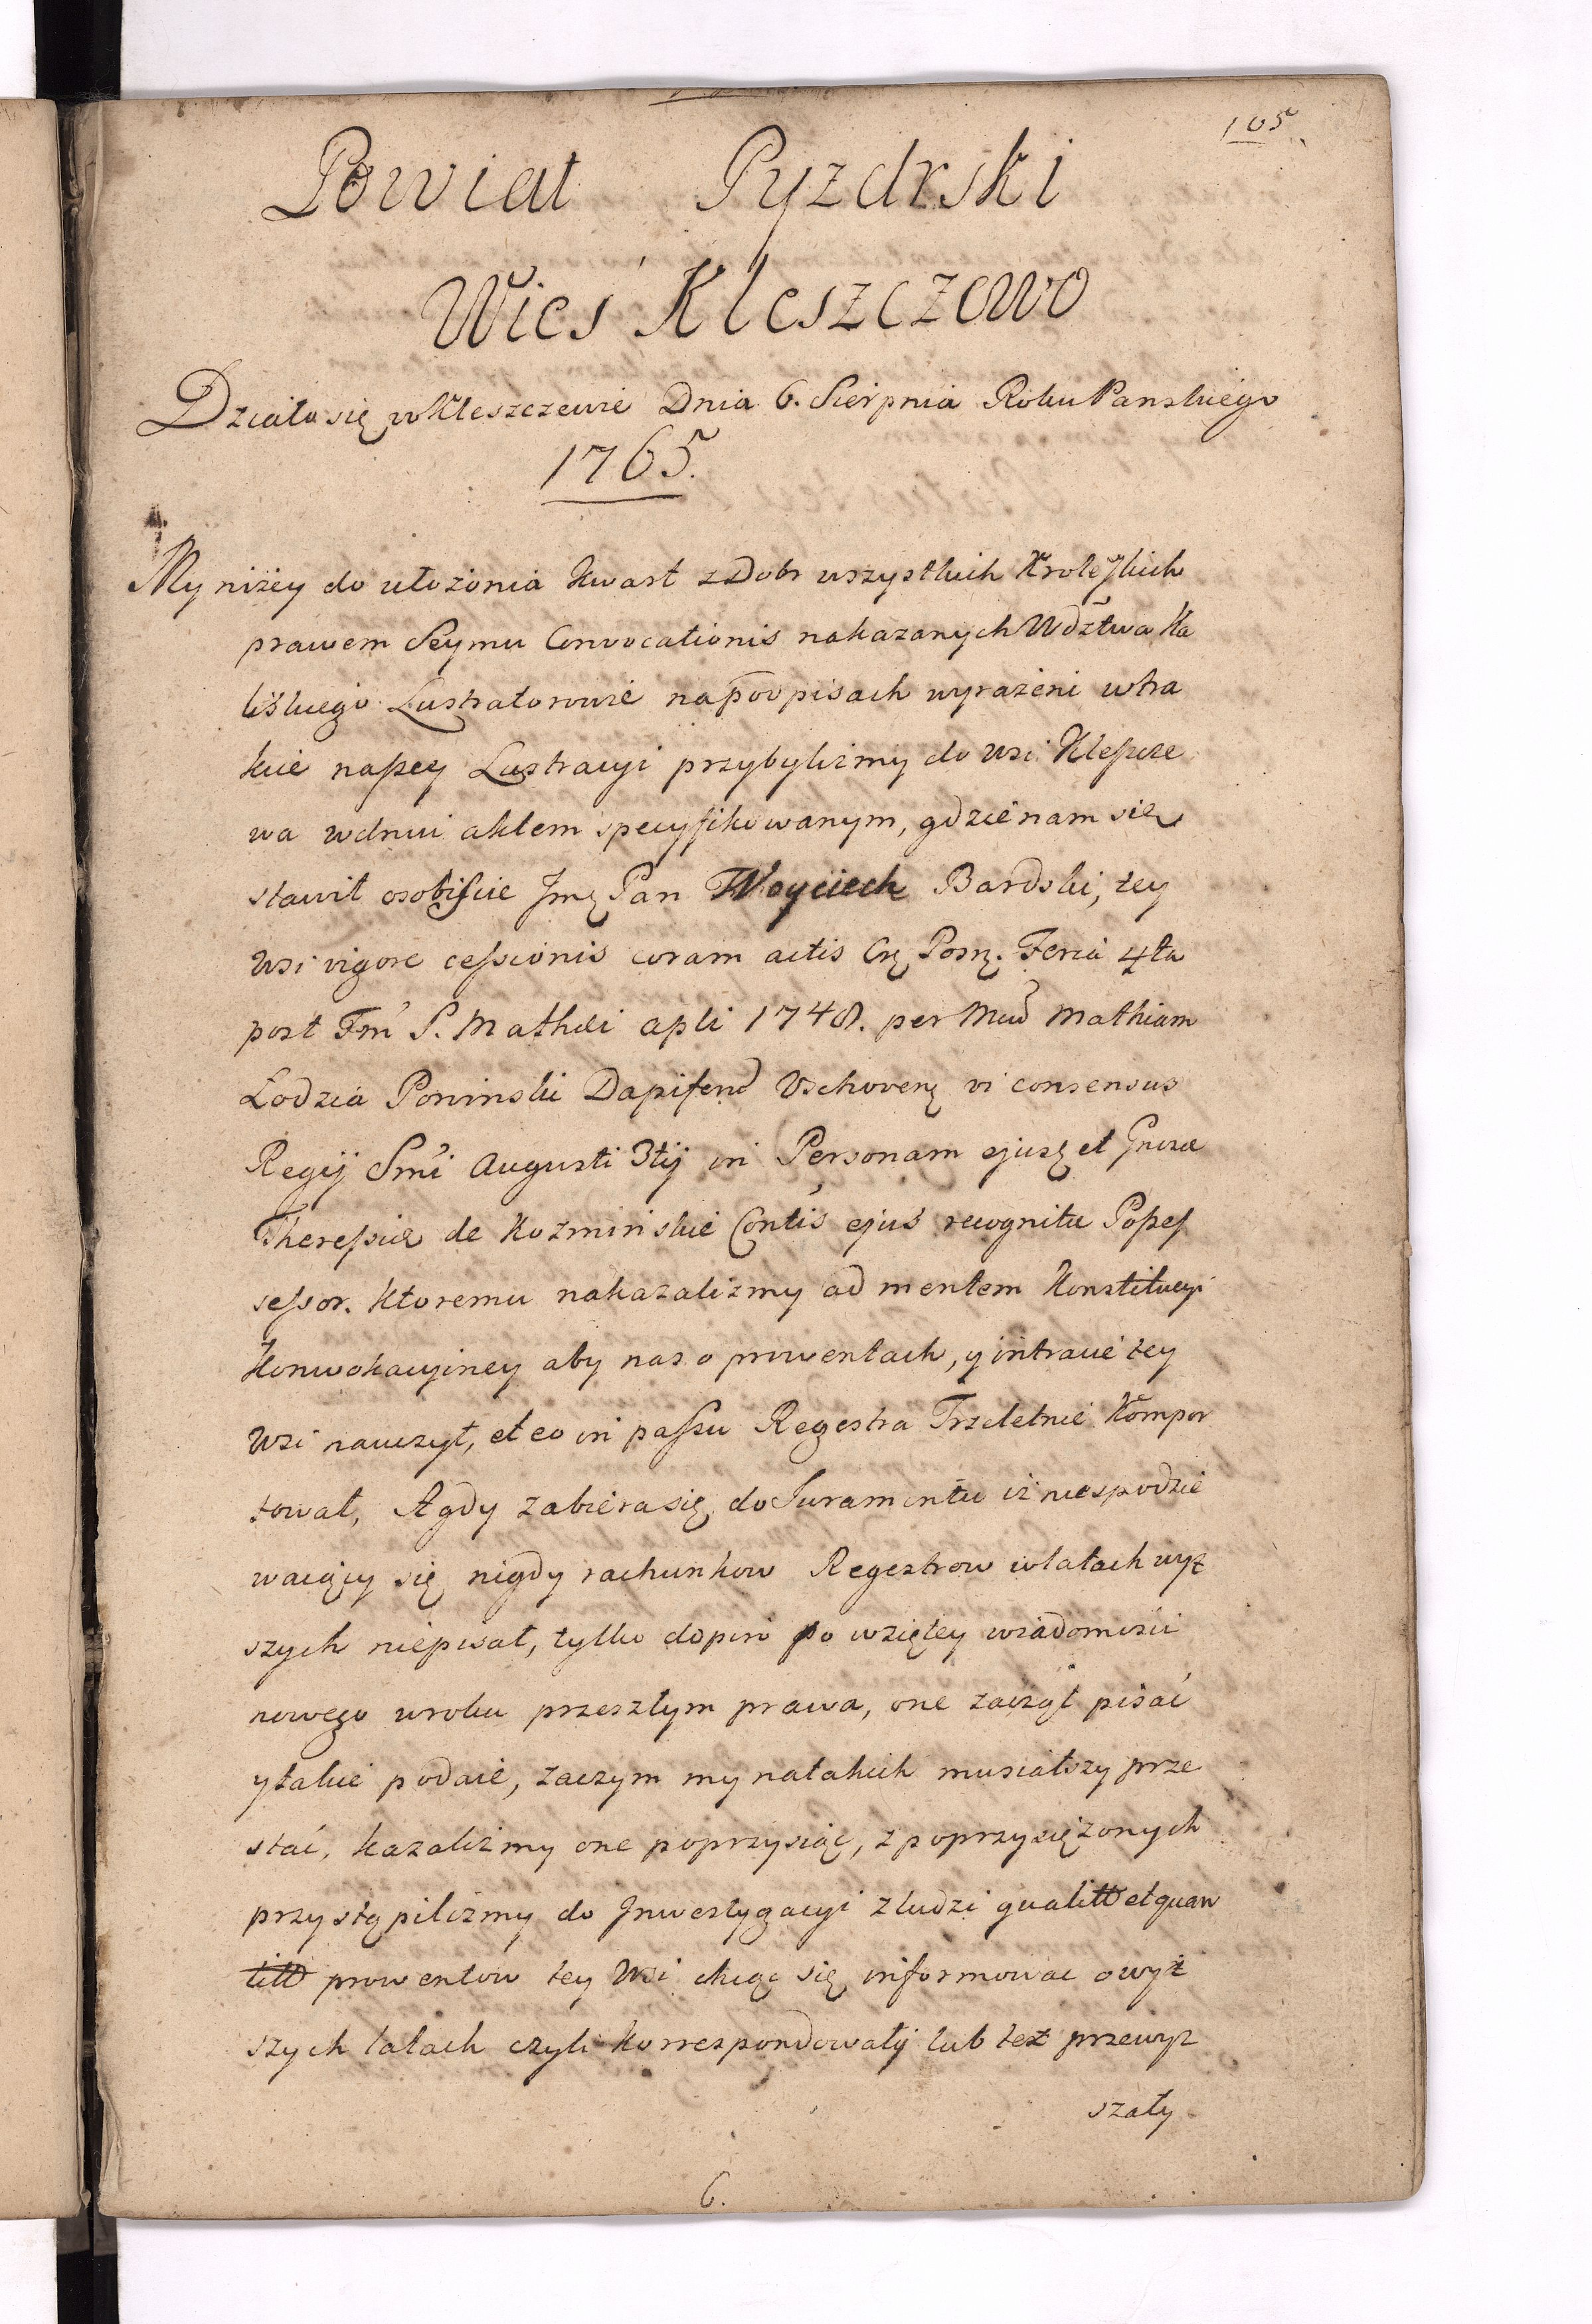 105
Powiat Pyzdrski
Wieś Kleszczewo
Działo się w Kleszczewie Dnia 6. Sierpnia Roku Panskiego
1765.
My niżey do ułożonia Kwart z Dobr wszystkich Krolesskich
prawem Seymu Convocationis nakazanych Wdztwa Ka
liskiego Lustratorowie na podpisach wyrażeni w tra
kcie naszey Lustracyi przybylismy do Wsi Kleszcze
wa w dniu aktem specyfikowanym, gdzie nam się
stawił osobiscie Jmę Pan Woyciech Bardski, tey
Wsi vigore cessionis coram actis Posn. Feria 4ta
post Fm S. Mathei apli 1748. per Mathiam
Łodzia Poninski Dapiferum Vschoven vi consensus
Regij Smi Augusti 3tij in Personam ejusq et Gnosae
Theressiae de Kozminskie Contis ejus recognitae Posses
sessor. Ktoremu nakazalizmy ad mentem Konstitucyi
Konwokacyiney aby nas o prowentach, y intracie tey
Wsi nauczył, et eo in passu Regestra Trzeletnie Kompor
tował, A gdy zabiera się do Juramentu iż niespodzie
waiący się nigdy rachunkow Regestrow w latach wyż
szych niepisał, tylko dopiro po wziętey wiadomosci
nowego w roku przeszłym prawa, one zaczął pisać
y takie podaie, zaczym my na takich musiałszy prze
stać, kazalizmy one poprzysiąc, z poprzysiężonych
przystąpilizmy do Jnwestygacyi z ludzi qualitt et quan
titt prowentow tey Wsi chcąc się informowac o wyż
szych latach czyli korrespondowały lub też przewyż
szały
6.